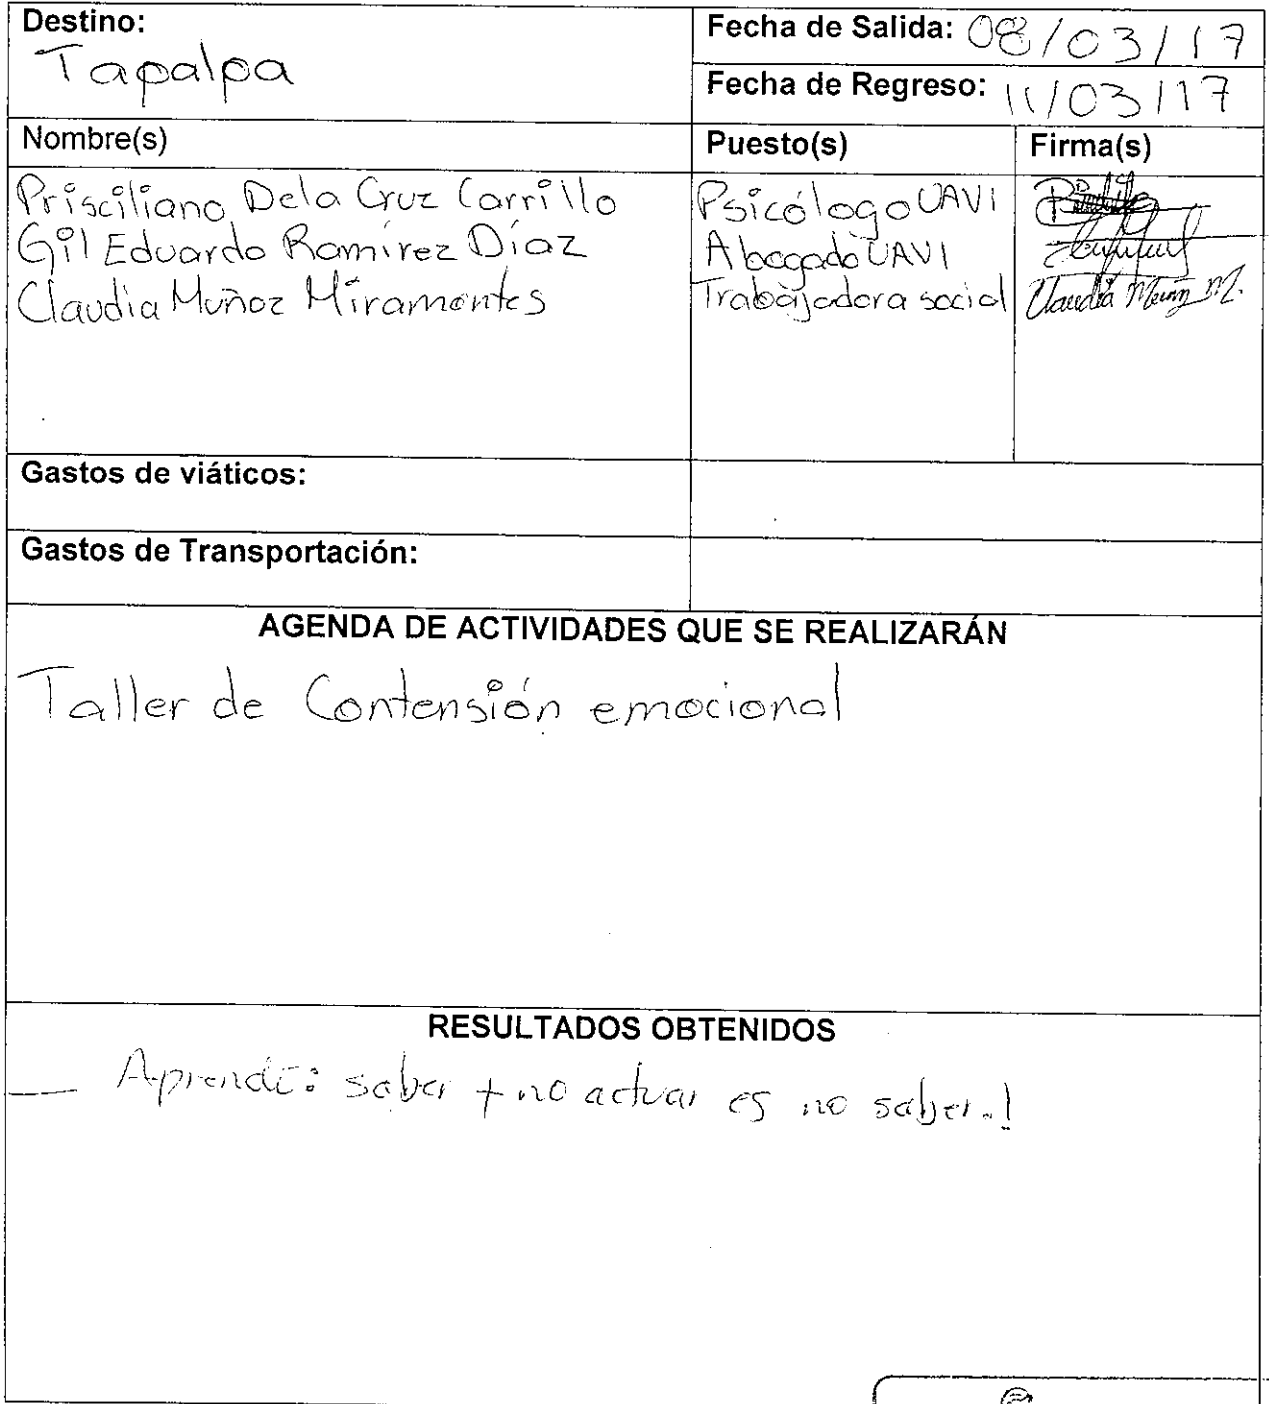 Destino:
Tapalpa
Fecha de Salida: 08/03/17
Fecha de Regreso: 11/03/17
Nombre(s)
Puesto(s)
Firma(s)
Prisciliano Dela Cruz Carrillo
Psicólogo UAVI
Gil Eduardo Ramírez Díaz
Abogado UAVI
Claudia Muñoz Miramontes
Trabajadora social
Claudia M.
Gastos de viáticos:
Gastos de Transportación:
AGENDA DE ACTIVIDADES QUE SE REALIZARÁN
Taller de Contensión emocional
RESULTADOS OBTENIDOS
— Aprendí: saber + no actuar es no saber.!